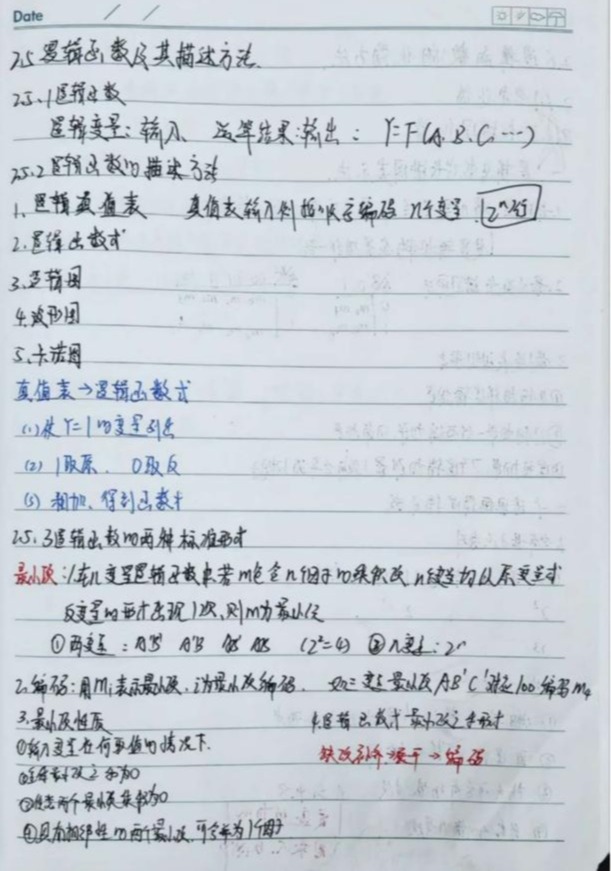 Date / /
2.5 逻辑函数及其描述方法.
2.5.1 逻辑函数
逻辑变量:输入 运算结果:输出: Y=F(A.B.C.…)
2.5.2 逻辑函数的描述方法
1.逻辑真值表 真值表输入侧按 编码 n个变量 2ⁿ行
2.逻辑函数式
3.逻辑图
4.波形图
5.卡诺图
真值表→逻辑函数式
(1)使Y=1的变量列出
(2) 1取原. 0取反
(3) 相加,得到函数式
2.5.3逻辑函数的两种标准形式
最小项:1.在n变量逻辑函数中若m包含n个因子的乘积项,n个变量均以原变量或
反变量的 出现1次,则m为最小项
①两变量:A'B' A'B AB' AB (2²=4) ②n变量:2ⁿ
2.编码:用Mᵢ表示最小项,i为最小项编码. 变量最小项AB'C'对应100编号m₄
3.最小项性质 4.逻辑函数式 最小项之和形式
①输入变量任何取值的情况下. →编码
②全体最小项之和为
③任意两个最小项乘积为0
④具有相邻性的两个最小项,可合并为1个因子